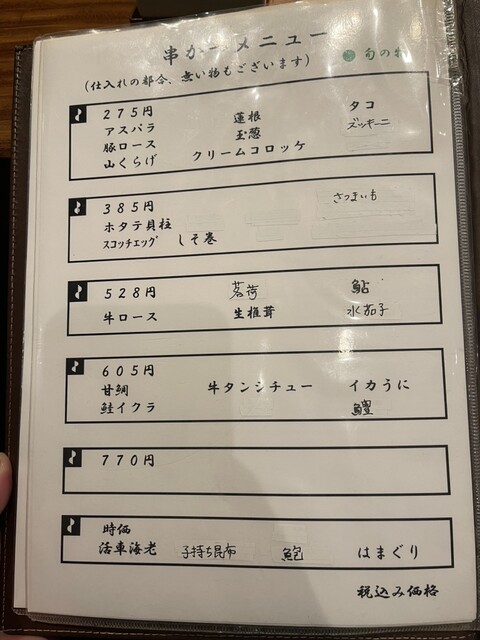 串かつメニュー
旬の物
(仕入れの都合、無い物もございます)
275円
アスパラ 蓮根 タコ
豚ロース 玉葱 ズッキーニ
山くらげ クリームコロッケ
385円 さつまいも
ホタテ貝柱
スコッチエッグ しそ巻
528円 茗荷 鮎
牛ロース 生椎茸 水茄子
605円
甘鯛 牛タンシチュー イカうに
鮭イクラ 鱧
770円
時価
活車海老 子持ち昆布 鮑 はまぐり
税込み価格